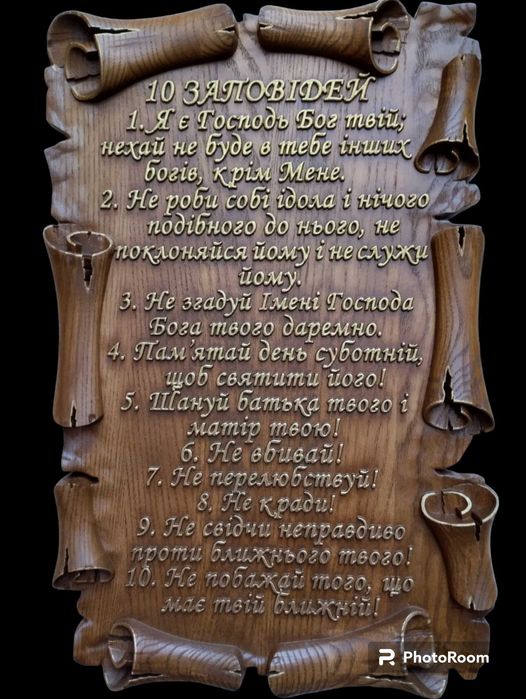 10 ЗАПОВІДЕЙ
1. Я є Господь Бог твій;
нехай не буде в тебе інших
богів, крім Мене.
2. Не роби собі ідола і нічого
подібного до нього, не
поклоняйся йому і не служи
йому.
3. Не згадуй Імені Господа
Бога твого даремно.
4. Пам'ятай день суботній,
щоб святити його!
5. Шануй батька твого і
матір твою!
6. Не вбивай!
7. Не перелюбствуй!
8. Не кради!
9. Не свідчи неправдиво
проти ближнього твого!
10. Не побажай того, що
має твій ближній!
PhotoRoom